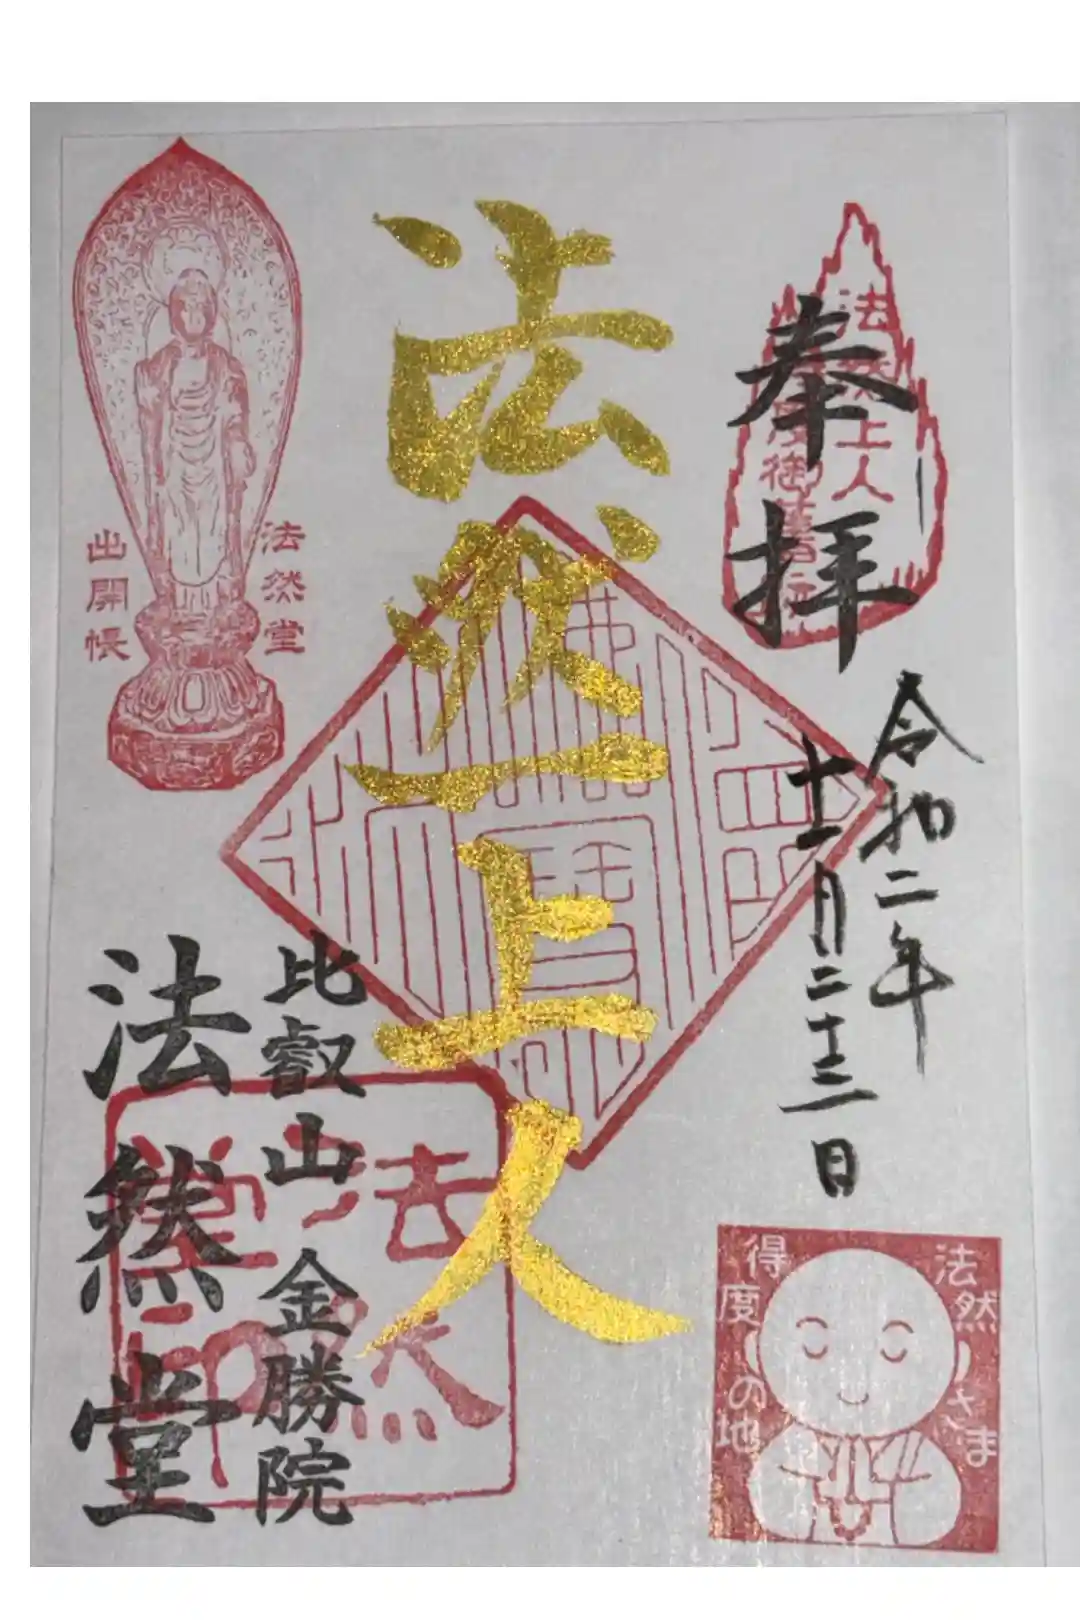 奉拝
令和二年
十一月二十三日
法然上人
比叡山 金勝院
法然堂
法然堂
出開帳
法然上人
法然堂印
法然さま
得度の地